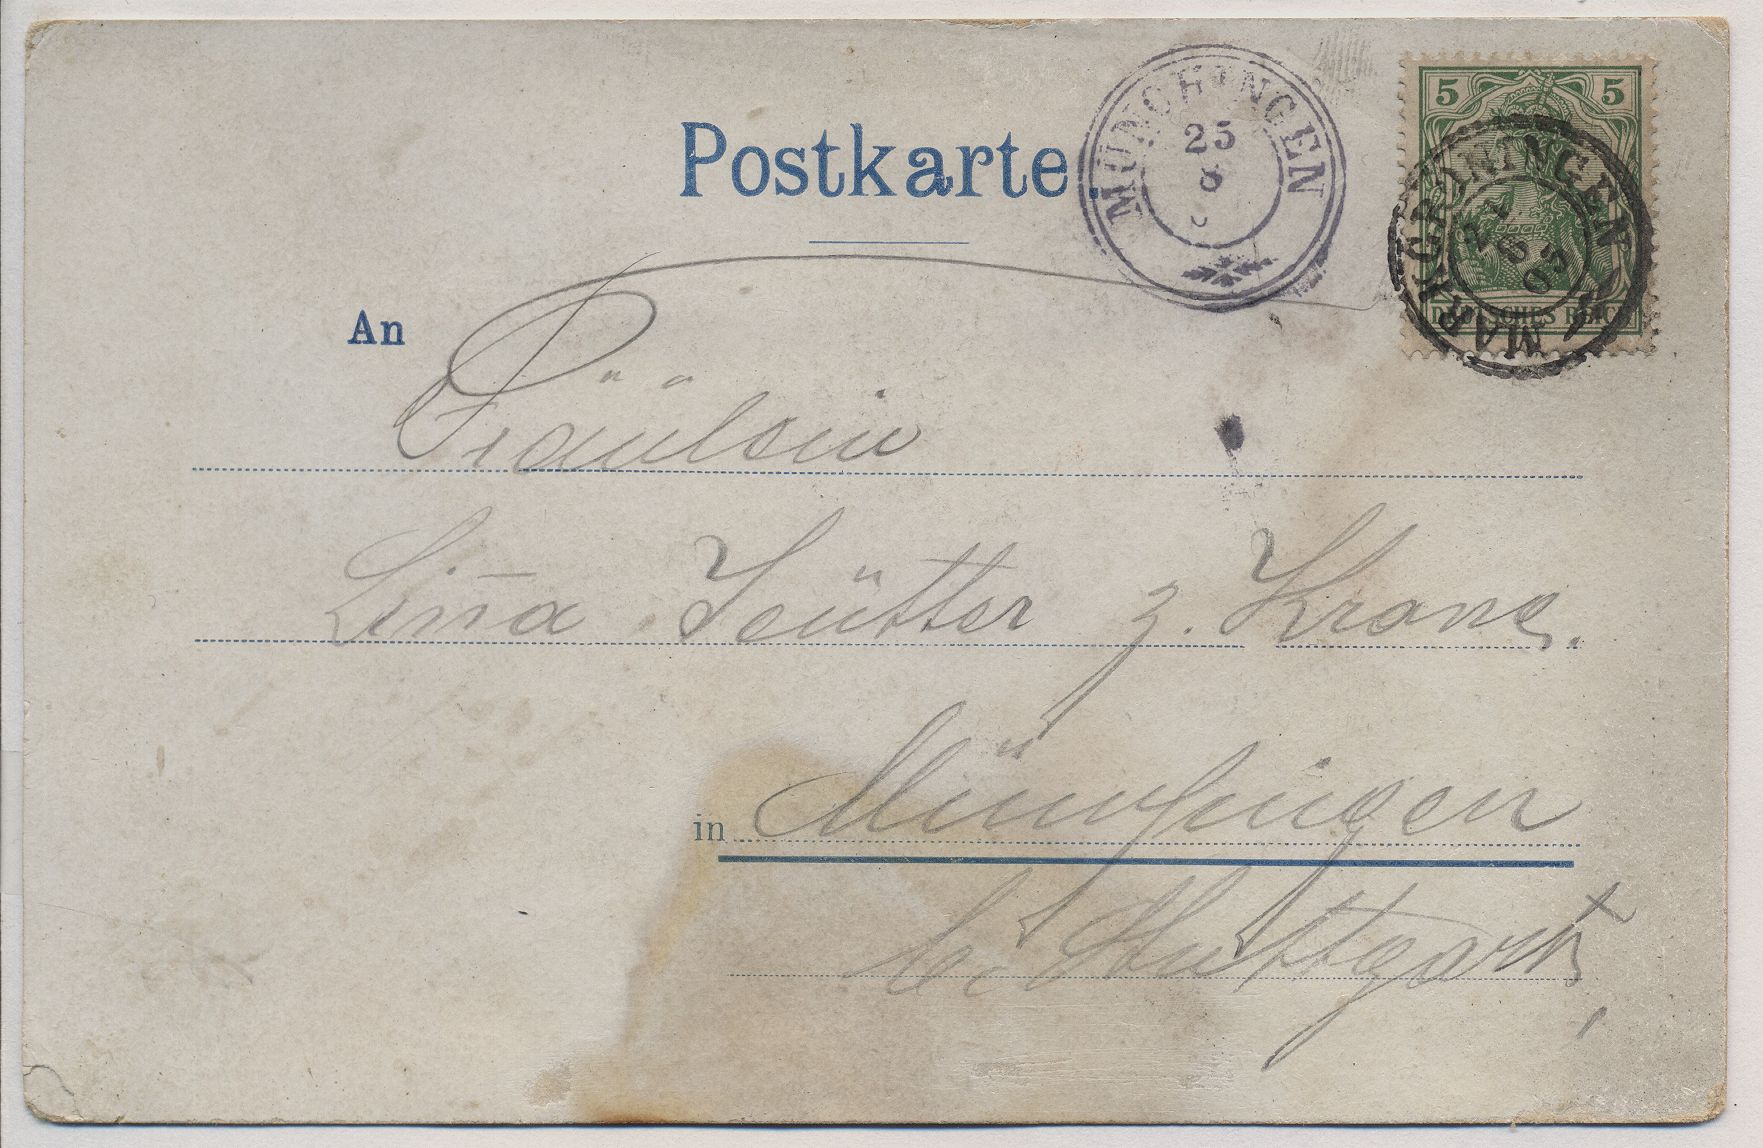 Postkarte.
MÜNCHINGEN
25
8
5 5
DEUTSCHES REICH
MARKGRÖNINGEN
03
An
Fräulein
Lina z. Krone.
in Münchingen
b. Stuttgart